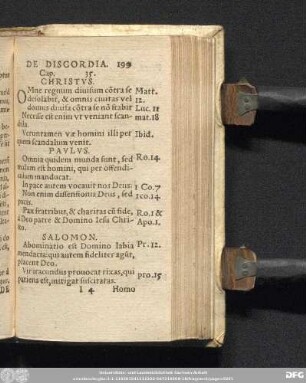 DE DISCORDIA. 199
Cap. 35.
CHRISTVS.
Omne regnum diuisum cōtra se Matt.
desolabit, & omnis ciuitas vel 12.
domus diuisa cōtra se nō stabit Luc. 11
Necesse est enim vt veniant scan- mat. 18
dala.
Veruntamen væ homini illi per Ibid.
quem scandalum venit.
PAVLVS.
Omnia quidem munda sunt, sed Ro. 14.
malum est homini, qui per offendi-
culum manducat.
In pace autem vocauit nos Deus. 1 Co. 7
Non enim dissensionis Deus, sed 1 co. 14.
pacis.
Pax fratribus, & charitas cū fide, Ro. 1 &
à Deo patre & Domino Iesu Chri- Apo. 1.
sto.
SALOMON.
Abominatio est Domino labia Pr. 12.
mendacia: qui autem fideliter agūt,
placent Deo.
Vir iracundus prouocat rixas, qui pro. 15
patiens est, mitigat suscitatas.
I 4 Homo
DFG